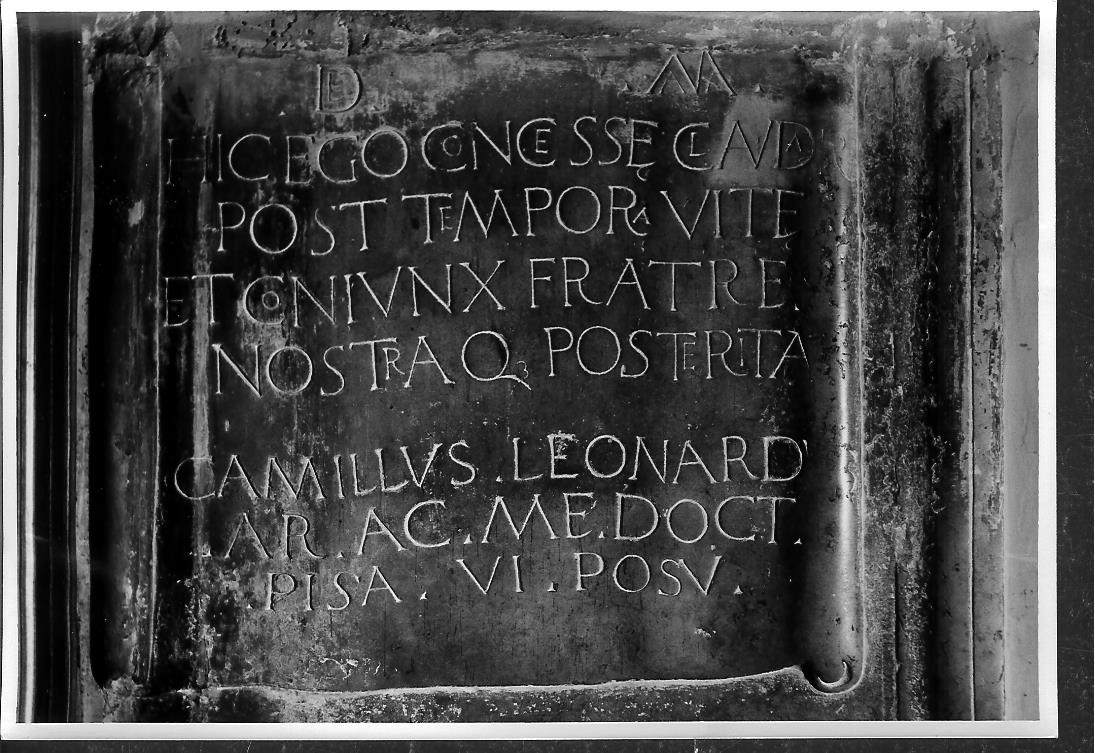 D. .M.
HIC EGO CONCESSE CLAVDOR
POST TEMPORA VITE
ET CONIVNX FRATRE
NOSTRA Q3 POSTERITA
CAMILLVS . LEONARD'
. AR . AC . ME . DOCT .
. PISA . VI . POSV .